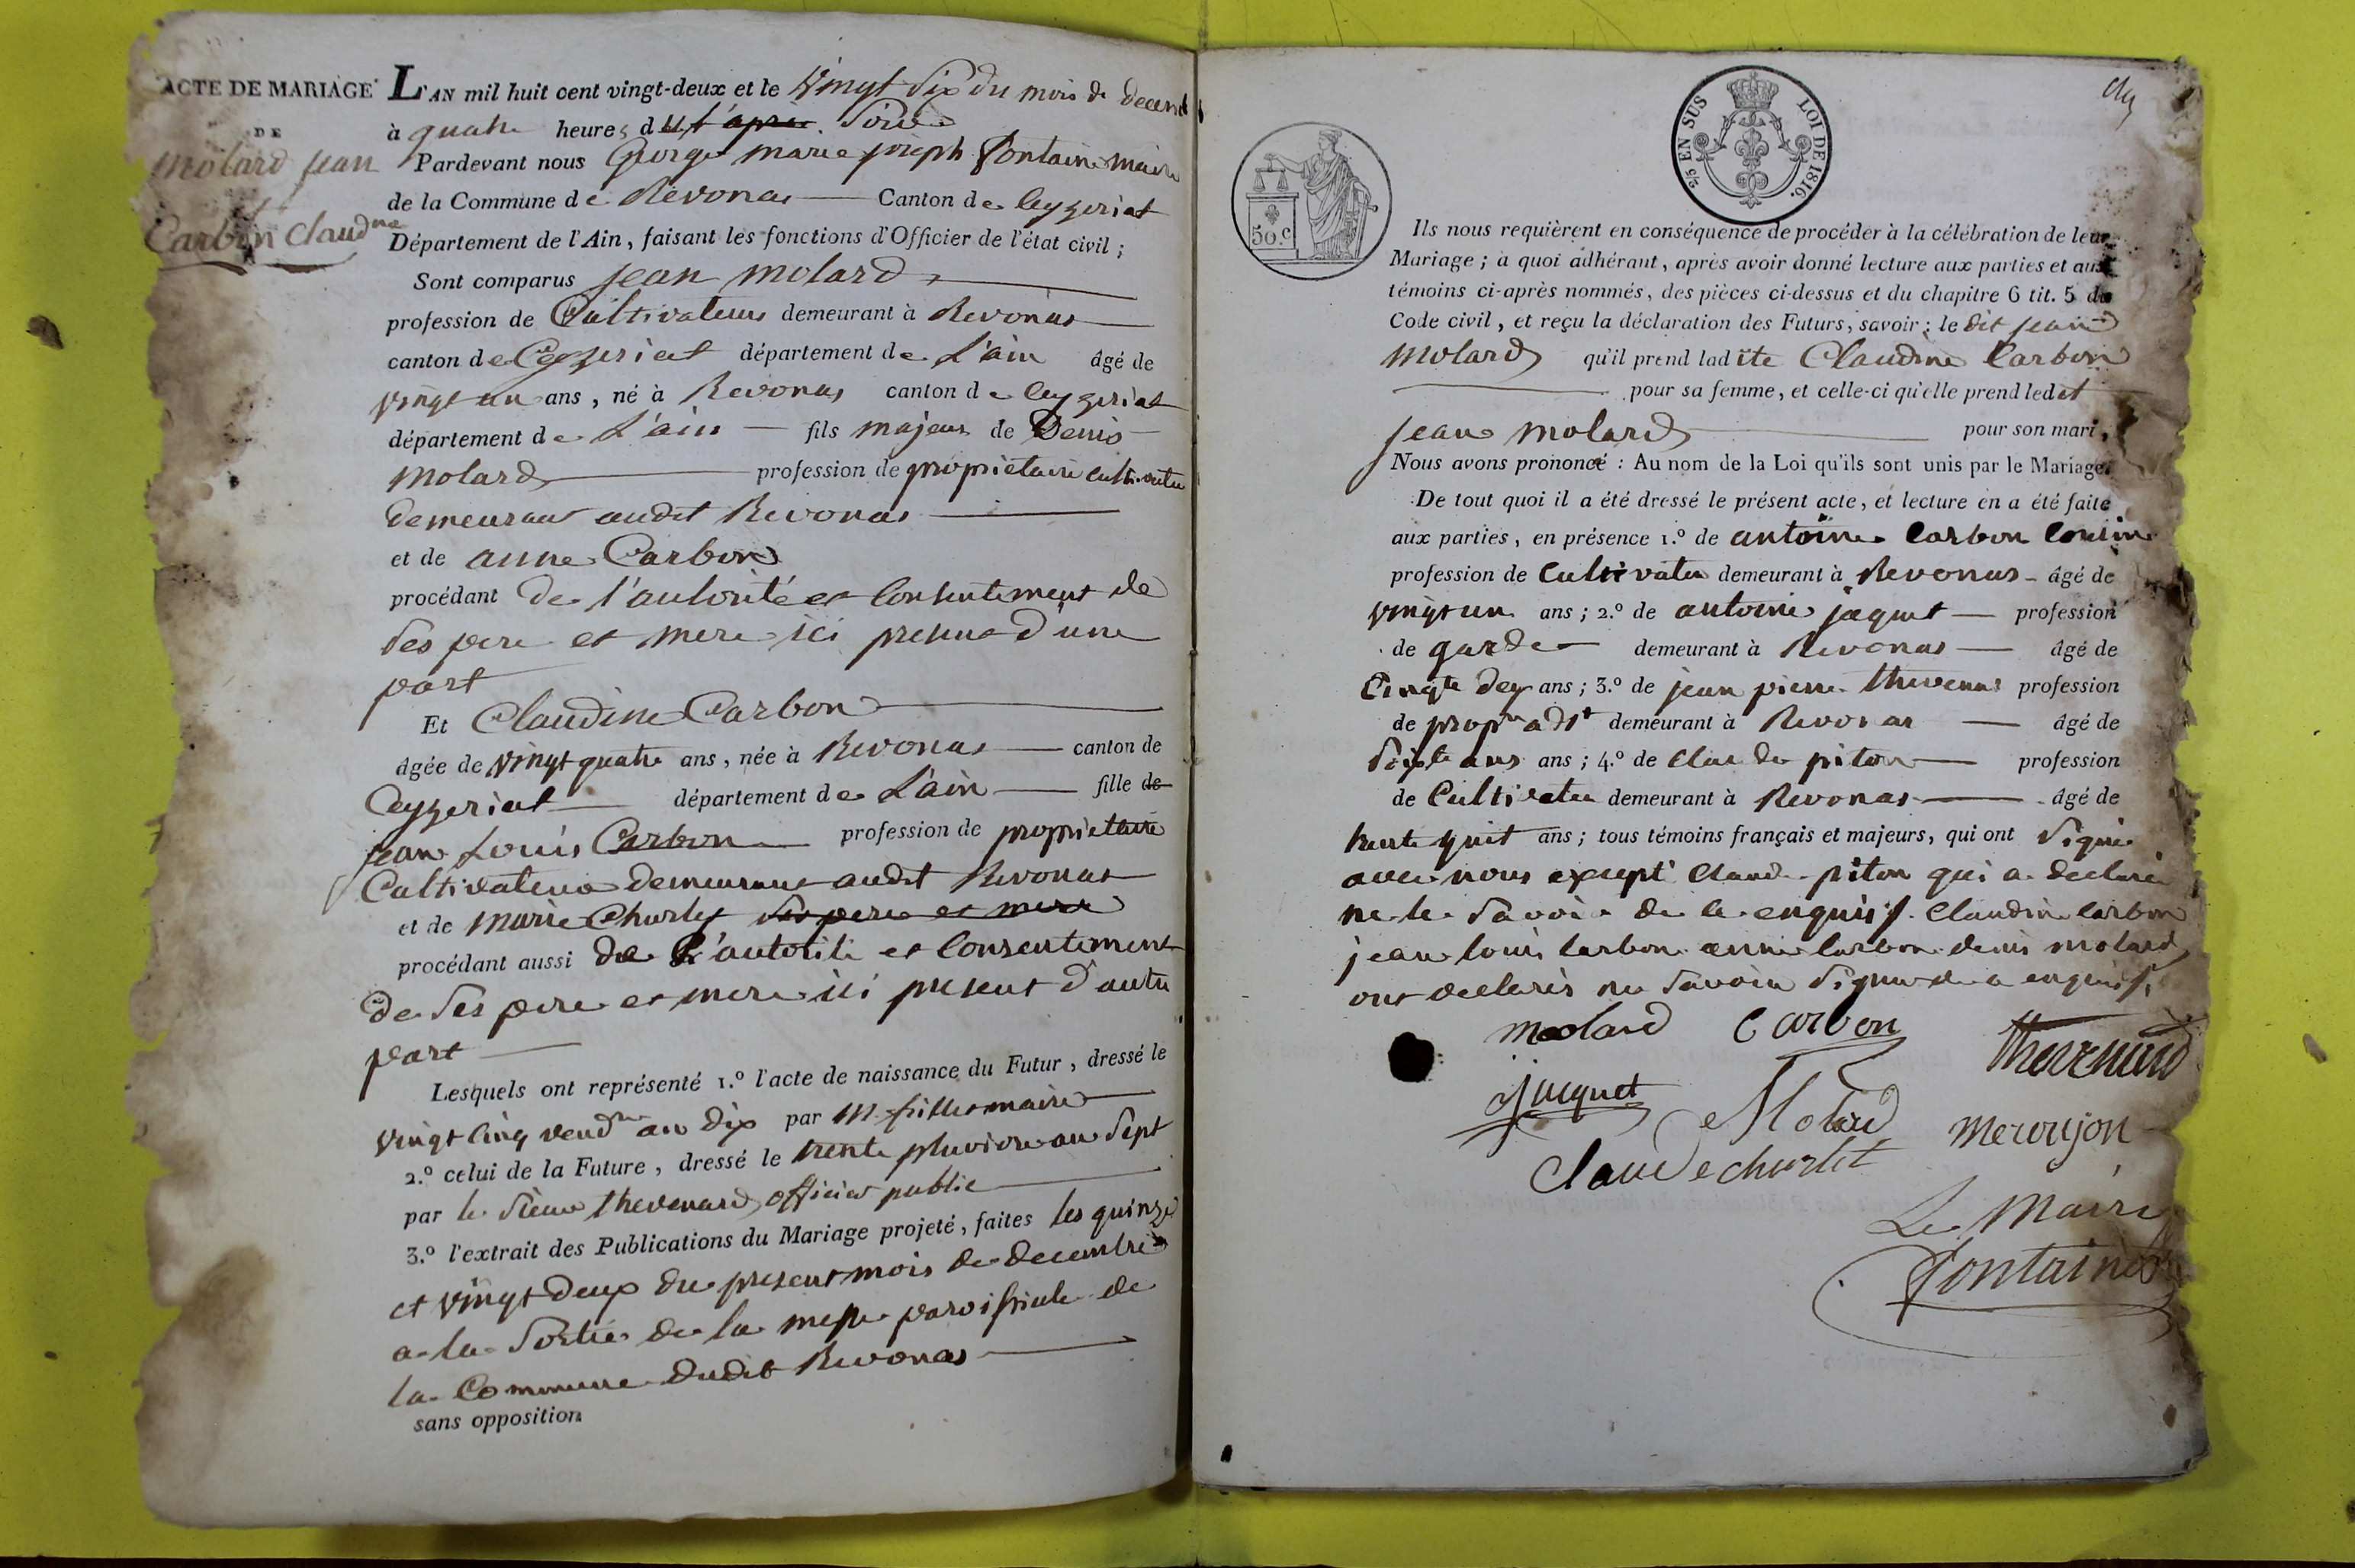 ACTE DE MARIAGE
DE
Molard jean
Carbon Claud.ne
L'AN mil huit cent vingt-deux et le vingt six du mois de decemb
à quatre heures du l'apres Soir
Pardevant nous George marie joseph fontaine maire
de la Commune de Revonas Canton de Ceyzeriat
Département de l'Ain, faisant les fonctions d'Officier de l'état civil;
Sont comparus jean molard
profession de Cultivateur demeurant à Revonas
canton de Ceyzeriat département de L'ain âgé de
vingt un ans, né à Revonas canton de Ceyzeriat
département de L'ain fils majeur de Denis
molard profession de proprietaire cultivateur
demeurant audit Revonas
et de anne Carbon
procédant de l'autorité et Consentement de
Ses pere et mere ici present d'une
part
Et Claudine Carbon
âgée de vingt quatre ans, née à Revonas canton de
Ceyzeriat département de L'ain fille de
jean Louis Carbon profession de proprietaire
Cultivateur demeurant audit Revonas
et de marie Churlet Ses pere et mere
procédant aussi de L'autorité et Consentement
de Ses pere et mere ici present d'autre
part
Lesquels ont représenté 1.º l'acte de naissance du Futur, dressé le
vingt cinq vend.re an dix par M. maire
2.º celui de la Future, dressé le trente pluviose an Sept
par le Sieur thevenard officier public
3.º l'extrait des Publications du Mariage projeté, faites les quinze
et vingt deux du present mois de decembre
a la Sortie de la messe paroissiale de
la Commune dudit Revonas
sans opposition
2/5 EN SUS
LOI DE 1816.
50.c
Ils nous requièrent en conséquence de procéder à la célébration de leur
Mariage; à quoi adhérant, après avoir donné lecture aux parties et aux
témoins ci-après nommés, des pièces ci-dessus et du chapitre 6 tit. 5 du
Code civil, et reçu la déclaration des Futurs, savoir: le dit jean
Molard qu'il prend ladite Claudine Carbon
pour sa femme, et celle-ci qu'elle prend ledit
jean molard pour son mari,
Nous avons prononcé: Au nom de la Loi qu'ils sont unis par le Mariage.
De tout quoi il a été dressé le présent acte, et lecture en a été faite
aux parties, en présence 1.º de antoine Carbon Cousin
profession de Cultivateur demeurant à Revonas âgé de
vingt un ans; 2.º de antoine jaquet profession
de garde demeurant à Revonas âgé de
ans; 3.º de jean pierre thevenard profession
de prop.re adj.t demeurant à Revonas âgé de
ans ans; 4.º de Claude piton profession
de Cultivateur demeurant à Revonas âgé de
trente ans; tous témoins français et majeurs, qui ont Signé
avec nous except Claude piton qui a declaré
ne le Savoir de ce enquis. Claudine Carbon
jean louis Carbon anne Carbon denis molard
ont declarés ne Savoir Signer de ce enquis.
molard Carbon thevenard
Jacquet Molard merujon
Claude churlet
Le Maire
fontaine